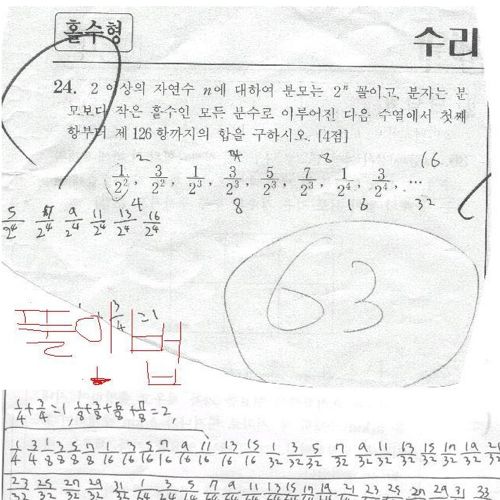 홀수형
수리
24. 2 이상의 자연수 n에 대하여 분모는 2ⁿ 꼴이고, 분자는 분
모보다 작은 홀수인 모든 분수로 이루어진 다음 수열에서 첫째
항부터 제 126 항까지의 합을 구하시오. [4점]
2 4 8 16
1/2², 3/2², 1/2³, 3/2³, 5/2³, 7/2³, 1/2⁴, 3/2⁴, …
4 8 16 32
5/2⁴ 7/2⁴ 9/2⁴ 11/2⁴ 13/2⁴ 16/2⁴
63
+ 3/4 = 1
풀이법
1/4 + 3/4 = 1, 1/8 + 3/8 + 5/8 + 7/8 = 2,
1/4 3/4 1/8 3/8 5/8 7/8 1/16 3/16 5/16 7/16 9/16 11/16 13/16 15/16 1/32 3/32 5/32 7/32 9/32 11/32 13/32 15/32 17/32 19/32 21/32
23/32 25/32 27/32 29/32 31/32